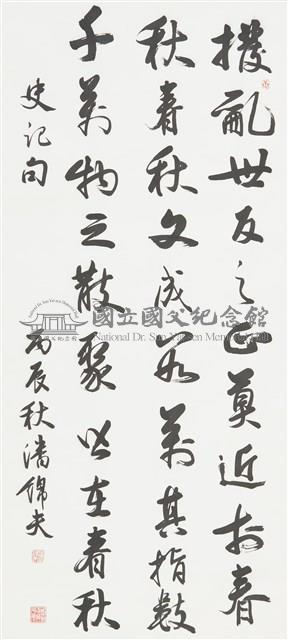 撥亂世反之正莫近於春
秋春秋文成數萬其指數
千萬物之散聚皆在春秋
史記句
丙辰秋潘錦夫
國立國父紀念館
National Dr. Sun Yat-sen Memorial Hall